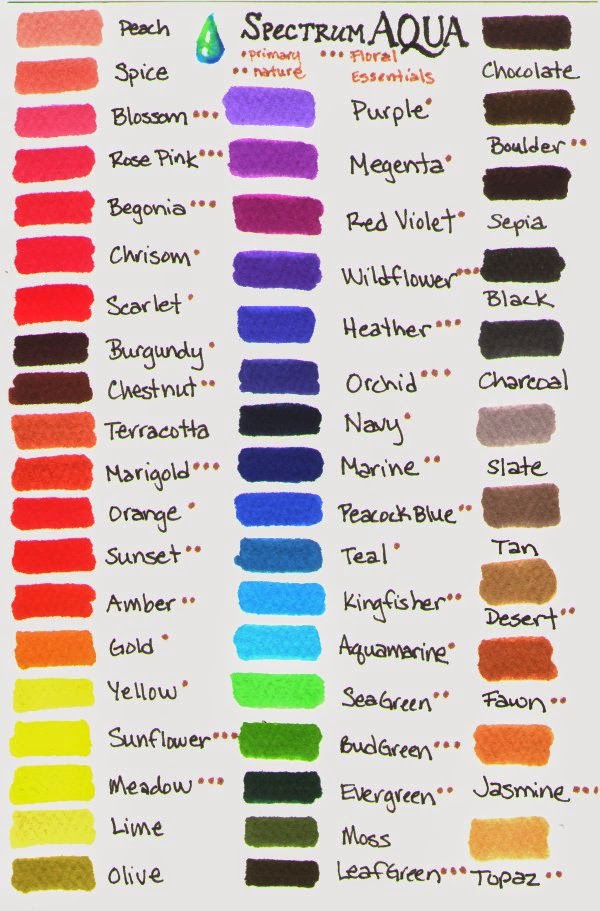 Spectrum AQUA
• primary
•• nature
••• Floral
Essentials
Peach
Spice
Blossom •••
Rose Pink •••
Begonia •••
Chrisom •
Scarlet •
Burgundy •
Chestnut ••
Terracotta
Marigold •••
Orange •
Sunset ••
Amber ••
Gold •
Yellow •
Sunflower •••
Meadow •••
Lime
Olive
Purple •
Megenta •
Red Violet •
Wildflower •••
Heather •••
Orchid •••
Navy •
Marine ••
Peacock Blue ••
Teal •
Kingfisher ••
Aquamarine •
Sea Green ••
Bud Green •••
Evergreen ••
Moss
Leaf Green •••
Chocolate
Boulder ••
Sepia
Black
Charcoal
Slate
Tan
Desert ••
Fawn ••
Jasmine •••
Topaz ••